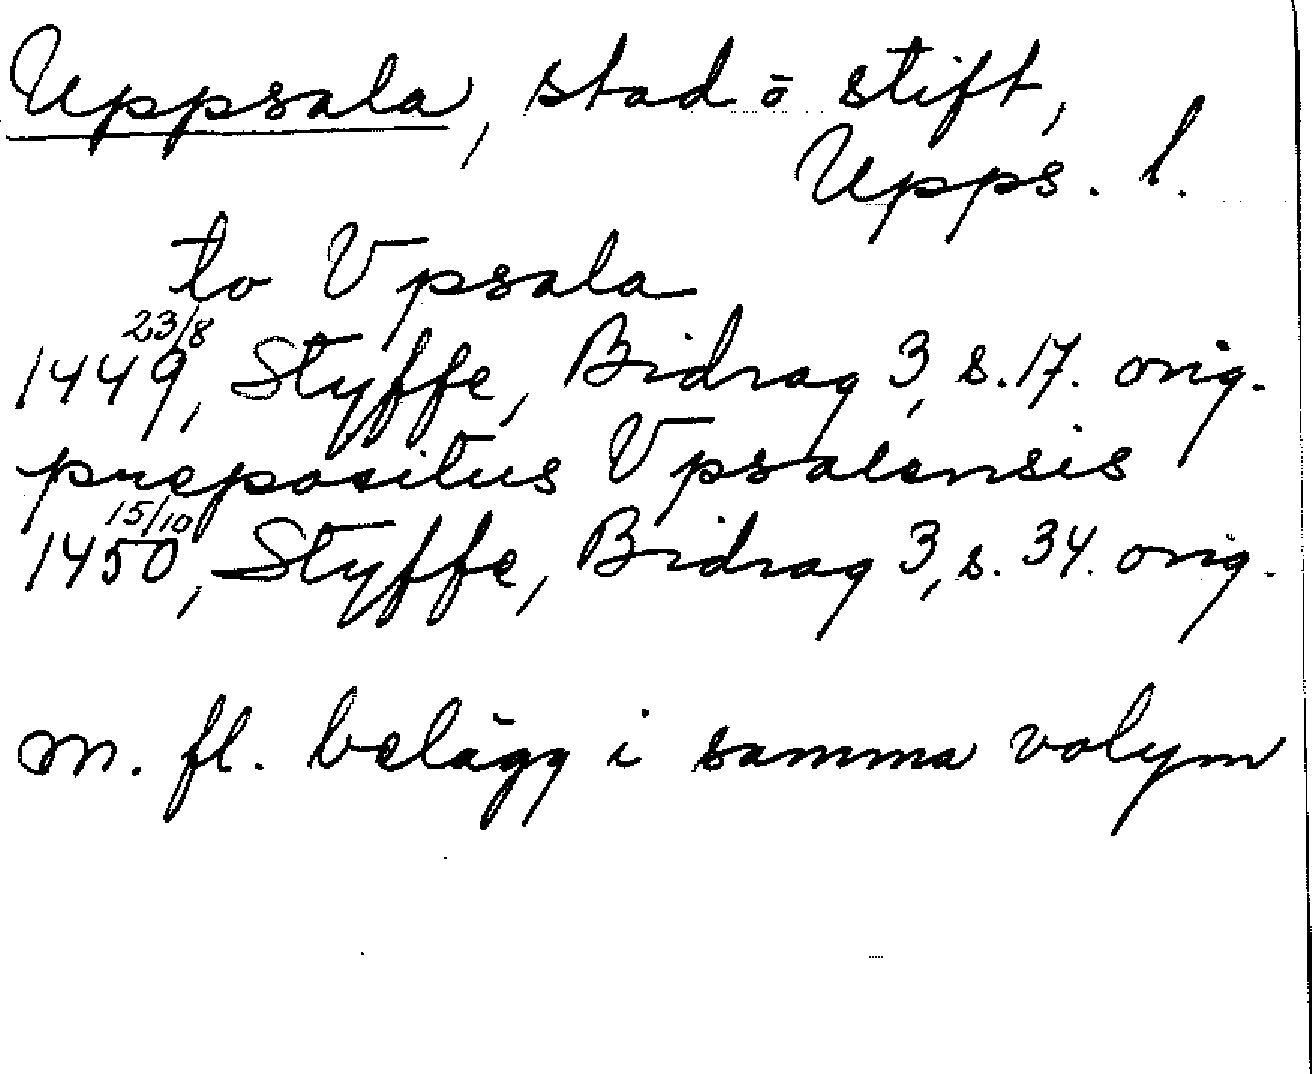 Uppsala, stad o stift,
Upps. l.
to Vpsala
23/8
1449, Styffe, Bidrag 3, s. 17. orig.
prepositus Vpsalensis
15/10
1450, Styffe, Bidrag 3, s. 34. orig.
m. fl. belägg i samma volym